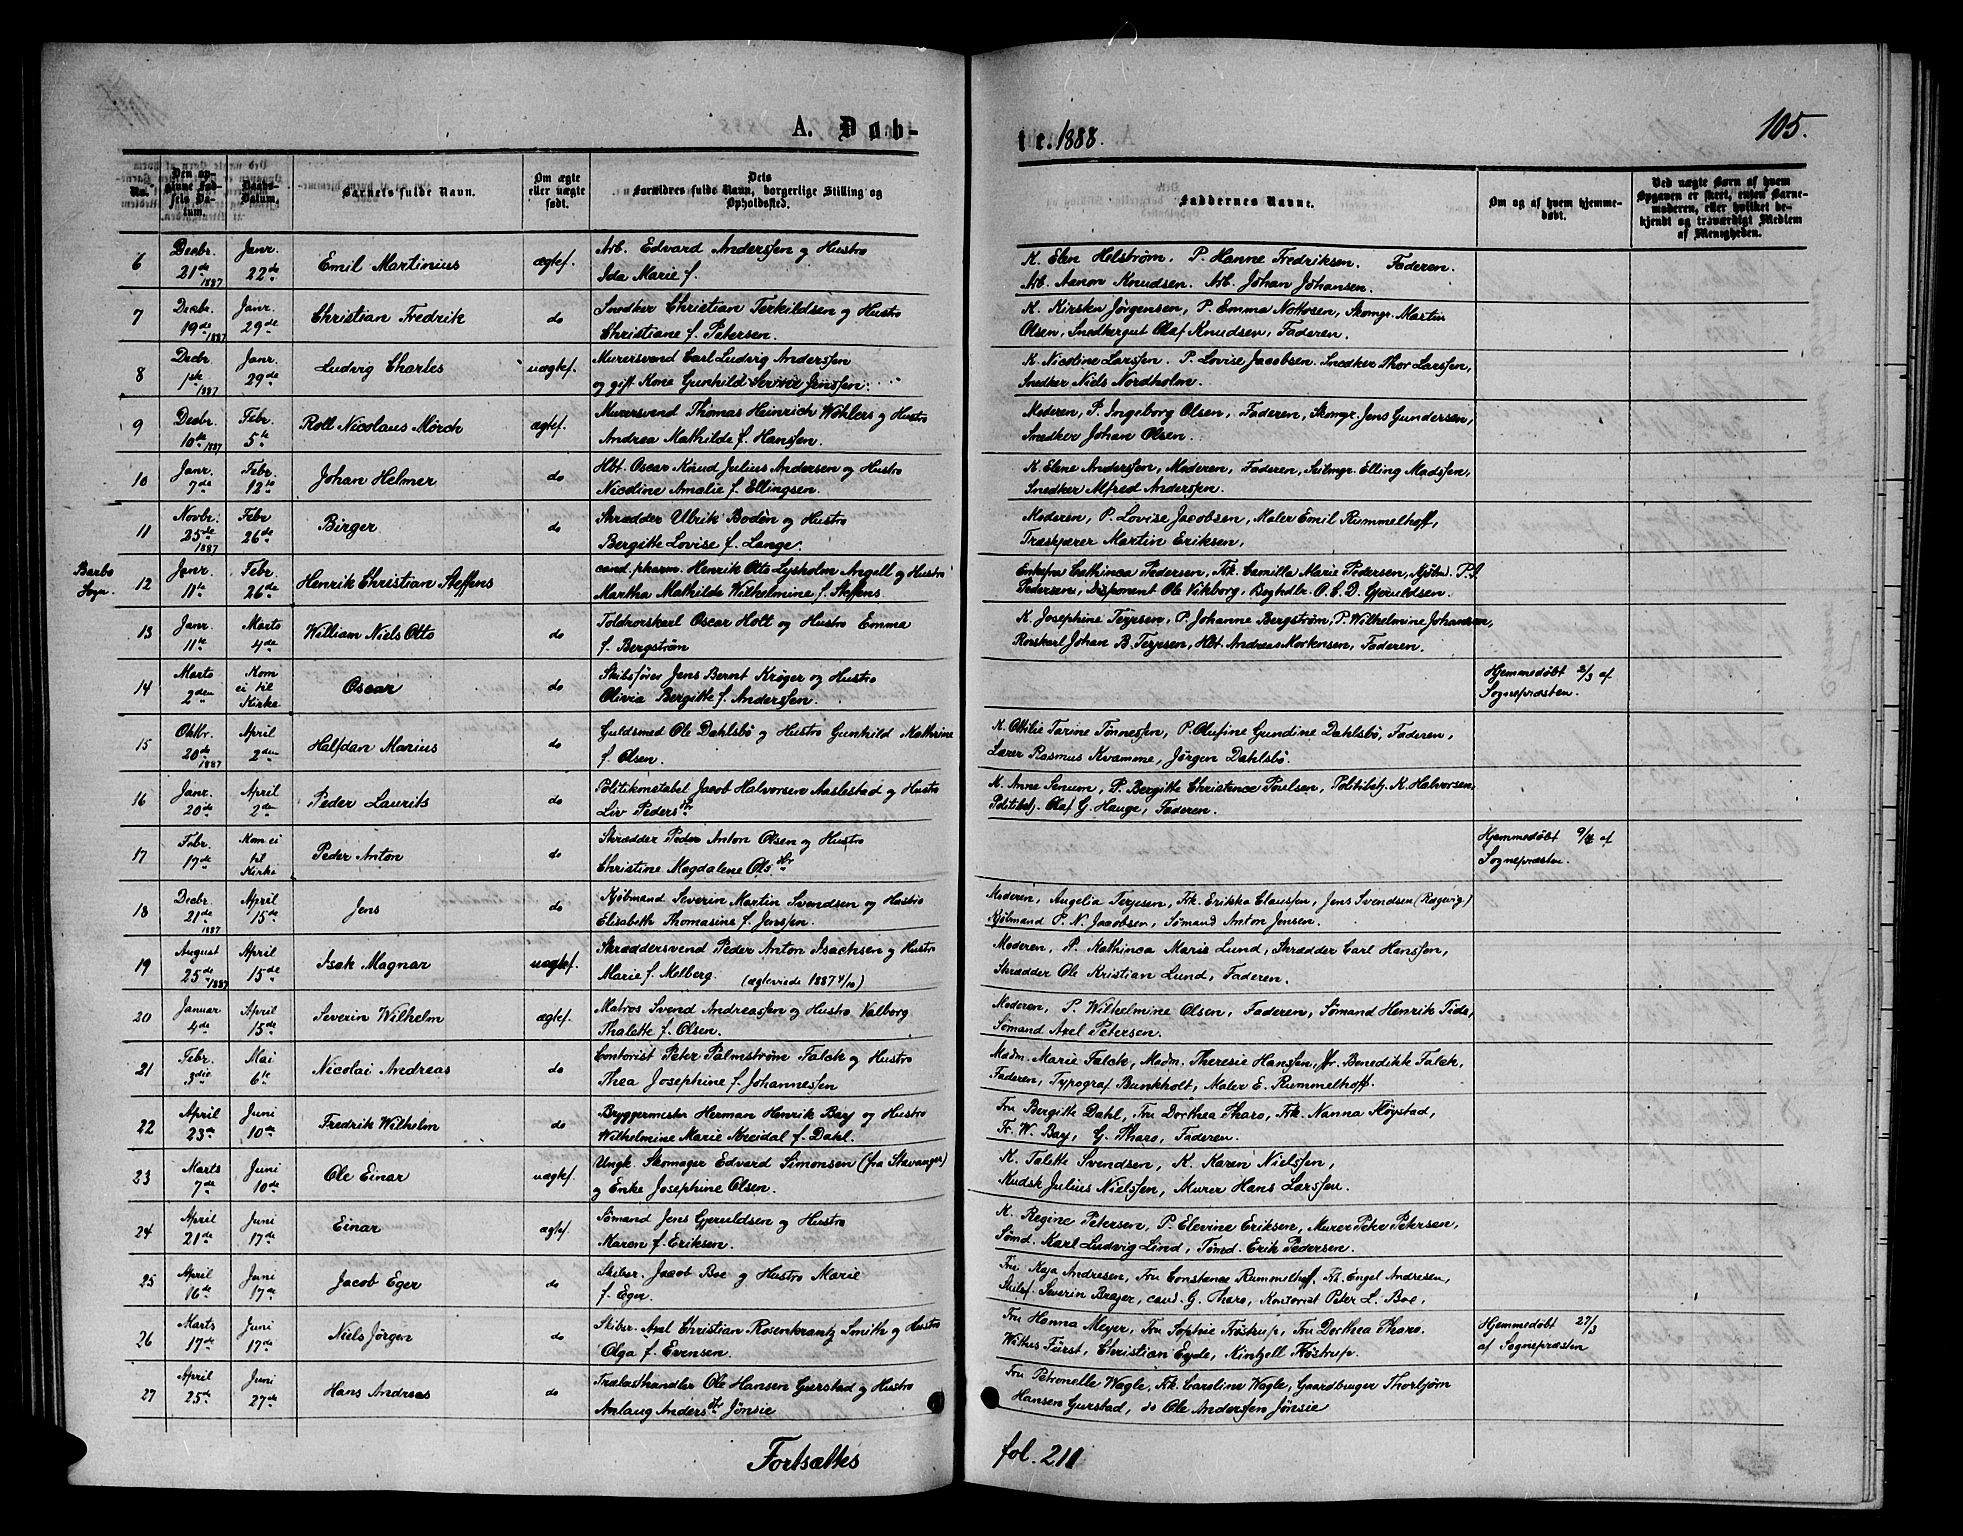 105.
A. Døb-
te. 1888.
No.
Den opgivne Fødsels Datum.
Daabs-Datum.
Barnets fulde Navn.
Om ægte eller uægte født.
Dets Forældres fulde Navn, borgerlige Stilling og Opholdssted.
Faddernes Navne.
Om og af hvem hjemmedøbt.
Ved uægte Børn af hvem Opgaven er skeet, enten Barnemoderen, eller hvilket bekjendt og troværdigt Medlem af Menigheden.
6 Decbr. 21de 1887 Janr. 22de Emil Martinius ægtef. Arb. Edvard Anderssen og Hustro
Ida Marie f.
K. Elen Helstrøm. P. Hanne Fredriksen. Faderen.
Arb. Aanon Knudsen. Arb. Johan Johansen.
7 Decbr. 19de 1887 Janr. 29de Christian Fredrik do Snedker Christian Terkildsen og Hustro
Christiane f. Petersen.
K. Kirsten Jörgensen, P. Emma Nottosen, Skomgr. Martin
Olsen, Snedkergut Olaf Knudsen, Faderen.
8 Decbr. 1ste 1887 Janr. 29de Ludvig Charles uægtef. Murersvend Carl Ludvig Anderssen
og gift Kone Gunhild Serine Jenssen.
K. Nicoline Larssen. P. Lovise Jacobsen. Snedker Thor Larssen,
Snedker Niels Nordholm.
9 Decbr. 10de 1887 Febr. 5te Roll Nicolaus Mörch ægtef. Murersvend Thomas Heinrich Wöhlers og Hustro
Andrea Mathilde f. Hanssen.
Moderen, P. Ingeborg Olsen, Faderen, Skomgr. Jens Gundersen,
Snedker Johan Olsen.
10 Janr. 7de Febr. 12te Johan Helmer do Hbt. Oscar Knud Julius Andersen og Hustro
Nicoline Amalie f. Ellingsen.
K. Elene Anderssen, Moderen, Faderen, Seilmgr. Elling Madssen,
Snedker Alfred Anderssen.
11 Novbr. 25de 1887 Febr 26de Birger do Skrædder Ulrik Bodèn og Hustro
Bergitte Lovise f. Lange.
Moderen, P. Lovise Jacobsen, Maler Emil Rummelhoff,
Træskjærer Martin Eriksen,
Barbo Sogn.
12 Janr. 11te Febr 26de Henrik Christian Steffens do cand. pharm. Henrik Otto Lysholm Angell og Hustro
Martha Mathilde Wilhelmine f. Steffens.
Enkefru Cathinca Pedersen, Frk. Camilla Marie Pedersen, Kjöbm. P. J.
Pedersen, Disponent Ole Vikborg, Boghdlr. O. C. D. Gjeruldsen.
13 Janr. 11te Marts 4de William Niels Otto do Toldrorskarl Oscar Holt og Hustro Emma
f. Bergström
K. Josephine Terjesen, P. Johanne Bergström, P. Wilhelmine Johansen,
Rorskarl Johan B. Terjesen, Hbt. Andreas Mortensen, Faderen.
14 Marts 2den Kom ei til Kirke Oscar do Skibsförer Jens Bernt Kröger og Hustro
Olivia Bergitte f. Anderssen.
Hjemmedöbt 2/3 af
Sognepræsten.
15 Oktbr. 20de 1887 April 2den Halfdan Marius do Guldsmed Ole Dahlsbö og Hustro Gunhild Kathrine
f. Olsen.
K. Othilie Tarine Tönnessen, P. Olufine Gundine Dahlsbö, Faderen,
Lærer Rasmus Kvamme, Jörgen Dahlsbö.
16 Janr. 20de April 2den Peder Laurits do Politikonstabel Jacob Halvorsen Aaslestad og Hustro
Liv Pedersdtr
K. Anne Senum, P. Bergitte Christence Poulsen, Politibtj. K. Halvorsen,
Politibtj. Olaf G. Hauge, Faderen.
17 Febr. 17de Kom ei til Kirke Peder Anton do Skrædder Peder Anton Olsen og Hustro
Christine Magdalene Olsdtr
Hjemmedöbt 9/4 af
Sognepræsten.
18 Decbr. 21de 1887 April 15de Jens do Kjöbmand Severin Martin Svendsen og Hustro
Elisabeth Thomasine f. Jenssen.
Moderen, Angelia Terjesen, Frk. Erikka Claussen, Jens Svendsen (Rægevig)
Kjöbmand P. N. Jacobsen, Sömand Anton Jensen.
19 August 25de 1887 April 15de Isak Magnar uægtef. Skræddersvend Peder Anton Isachsen og Hustro
Marie f. Molberg. (ægteviede 1887 4/10)
Moderen, P. Kathinca Marie Lund, Skrædder Carl Hanssen,
Skrædder Ole Kristian Lund, Faderen.
20 Januar 4de April 15de Severin Wilhelm ægtef. Matros Svend Andreassen og Hustro Valborg
Thalette f. Olsen.
Moderen, P. Wilhelmine Olsen, Faderen, Sömand Henrik Tide,
Sömand Axel Petersen.
21 Febr. 3die Mai 6te Nicolai Andreas do Contorist Peter Palmström Falck og Hustro
Thea Josephine f. Johannessen
Madm. Marie Falck, Madm. Theresie Hanssen, Jfr. Benedikte Falck,
Faderen, Typograf Bunkholt, Maler E. Rummelhoff.
22 April 23de Juni 10de Fredrik Wilhelm do Bryggermester Herman Henrik Bay og Hustro
Wilhelmine Marie Nreidal f. Dahl.
Fru Bergitte Dahl, Fru Dorthea Tharo, Frk. Nanna Flöystad,
Fr. W. Bay, G. Tharo, Faderen.
23 Marts 7de Juni 10de Ole Einar uægtef. Ungk. Skomager Edvard Simonsen (fra Stavanger)
og Enke Josephine Olsen.
K. Talette Svendsen, K. Karen Nielssen,
Kudsk Julius Nielssen, Murer Hans Larssen.
24 April 21de Juni 17de Einar ægtef. Sömand Jens Gjeruldsen og Hustro
Maren f. Eriksen.
K. Regine Petersen, P. Elevine Eriksen, Murer Peter Petersen,
Sömd. Karl Ludvig Lind, Tömd. Erik Pedersen.
25 April 16de Juni 17de Jacob Eger do Skibsr. Jacob Boe og Hustro Marie
f. Eger.
Fru Kaja Andresen, Fru Constance Rummelhoff, Frk. Engel Andresen,
Skibsf. Severin Brager, cand. G. Tharo, Kontorist Peter L. Boe,
26 Marts 17de Juni 17de Niels Jörgen do Skibsr. Axel Christian Rosenkrantz Smith og Hustro
Olga f. Evensen.
Fru Hanna Meyer, Fru Sophie Tröstrup, Fru Dorthea Tharo.
Wittus Fürst, Christian Eyde, Kintzell Fröstrup.
Hjemmedöbt 27/3
af Sognepræsten
27 April 25de Juni 27de Hans Andreas do Trælasthandler Ole Hansen Gjerstad og Hustro
Anlaug Andersdtr Jönsie
Fru Petronelle Wagle, Frk. Caroline Wagle, Gaardbruger Thorbjörn
Hansen Gjerstad, do Ole Anderssen Jönsie
Fortsættes
fol. 211